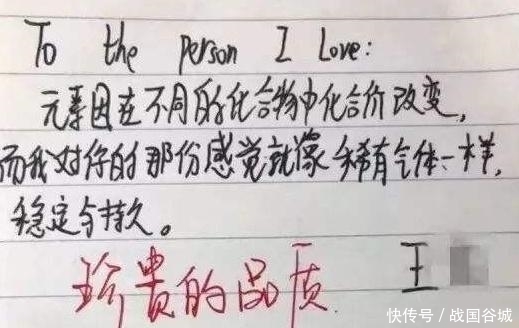 To the person I Love:
元素因在不同的化合物中化合价改变，
而我对你的那份感觉就像稀有气体一样，
稳定与持久。
珍贵的品质 王
快传号/战国谷城